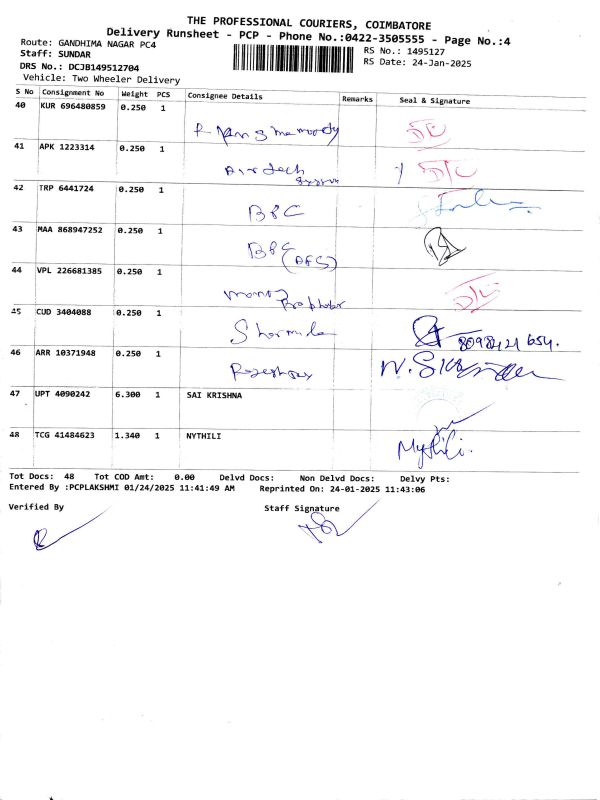 THE PROFESSIONAL COURIERS, COIMBATORE
Delivery Runsheet - PCP - Phone No.:0422-3505555 - Page No.:4
Route: GANDHIMA NAGAR PC4
RS No.: 1495127
Staff: SUNDAR
RS Date: 24-Jan-2025
DRS No.: DCJB149512704
Vehicle: Two Wheeler Delivery
S No Consignment No Weight PCS Consignee Details Remarks Seal & Signature
40 KUR 696480859 0.250 1
D/C
41 APK 1223314 0.250 1
Airtech D/C
42 TRP 6441724 0.250 1
BFC
43 MAA 868947252 0.250 1
BFC
(AFS)
44 VPL 226681385 0.250 1
D/C
45 CUD 3404088 0.250 1
Sharmila
46 ARR 10371948 0.250 1
47 UPT 4090242 6.300 1 SAI KRISHNA
48 TCG 41484623 1.340 1 NYTHILI
Mythili.
Tot Docs: 48 Tot COD Amt: 0.00 Delvd Docs: Non Delvd Docs: Delvy Pts:
Entered By :PCPLAKSHMI 01/24/2025 11:41:49 AM Reprinted On: 24-01-2025 11:43:06
Verified By Staff Signature